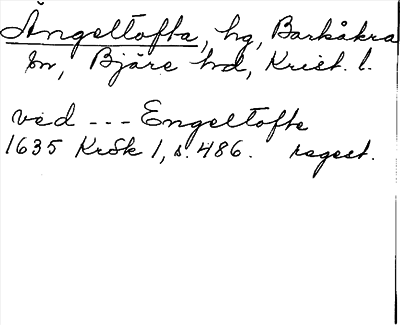 Ängeltofta, hg, Barkåkra
sn, Bjäre hd, Krist. l.
ved --- Engeltofte
1635 KrSk 1, s. 486. regest.